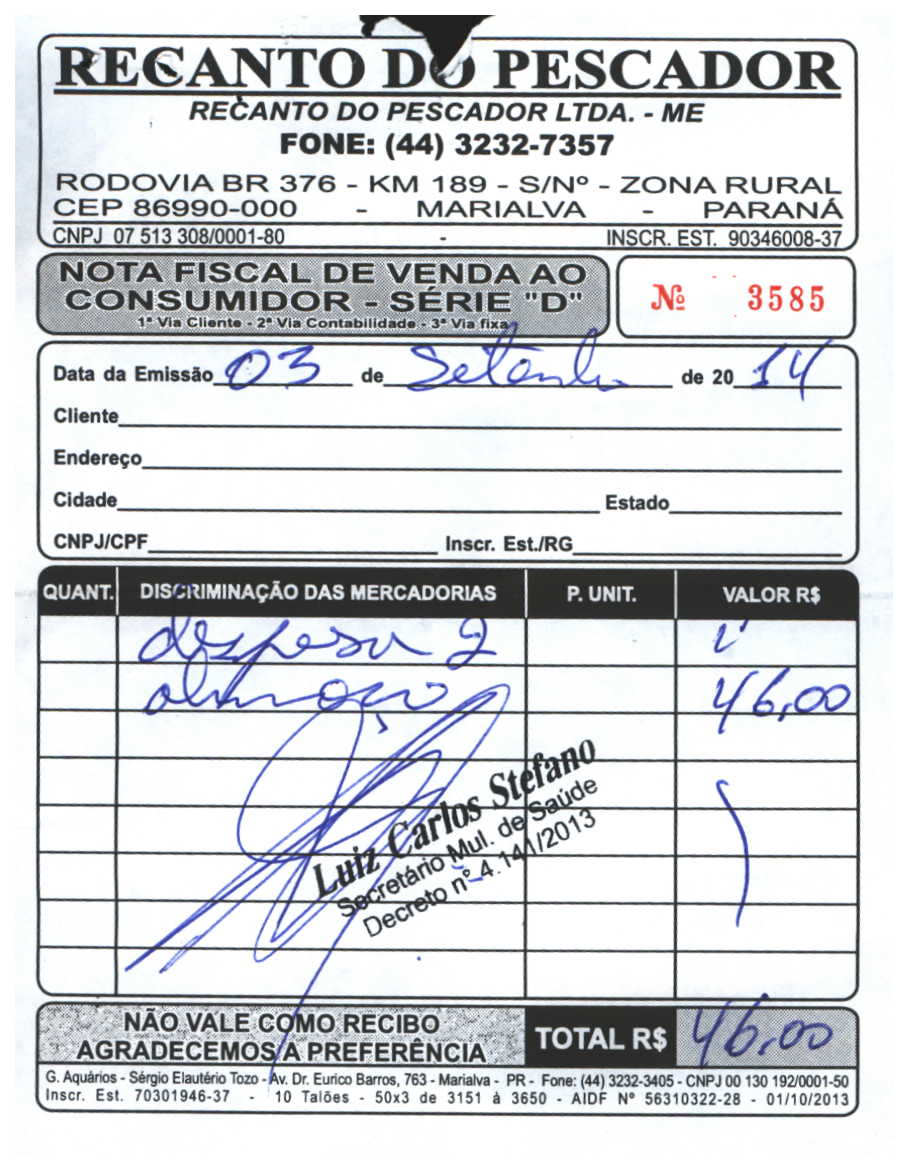 RECANTO DO PESCADOR
RECANTO DO PESCADOR LTDA. - ME
FONE: (44) 3232-7357
RODOVIA BR 376 - KM 189 - S/Nº - ZONA RURAL
CEP 86990-000 - MARIALVA - PARANÁ
CNPJ 07 513 308/0001-80 - INSCR. EST. 90346008-37
NOTA FISCAL DE VENDA AO
CONSUMIDOR - SÉRIE "D"
1ª Via Cliente - 2ª Via Contabilidade - 3ª Via fixa
Nº 3585
Data da Emissão 03 de Setembro de 20 14
Cliente
Endereço
Cidade Estado
CNPJ/CPF Inscr. Est./RG
QUANT. DISCRIMINAÇÃO DAS MERCADORIAS P. UNIT. VALOR R$
despesa 2
almoço 46,00
Luiz Carlos Stefano
Secretário Mul. de Saúde
Decreto nº 4.141/2013
NÃO VALE COMO RECIBO
AGRADECEMOS A PREFERÊNCIA
TOTAL R$ 46,00
G. Aquários - Sérgio Elautério Tozo - Av. Dr. Eurico Barros, 763 - Marialva - PR - Fone: (44) 3232-3405 - CNPJ 00 130 192/0001-50
Inscr. Est. 70301946-37 - 10 Talões - 50x3 de 3151 à 3650 - AIDF Nº 56310322-28 - 01/10/2013